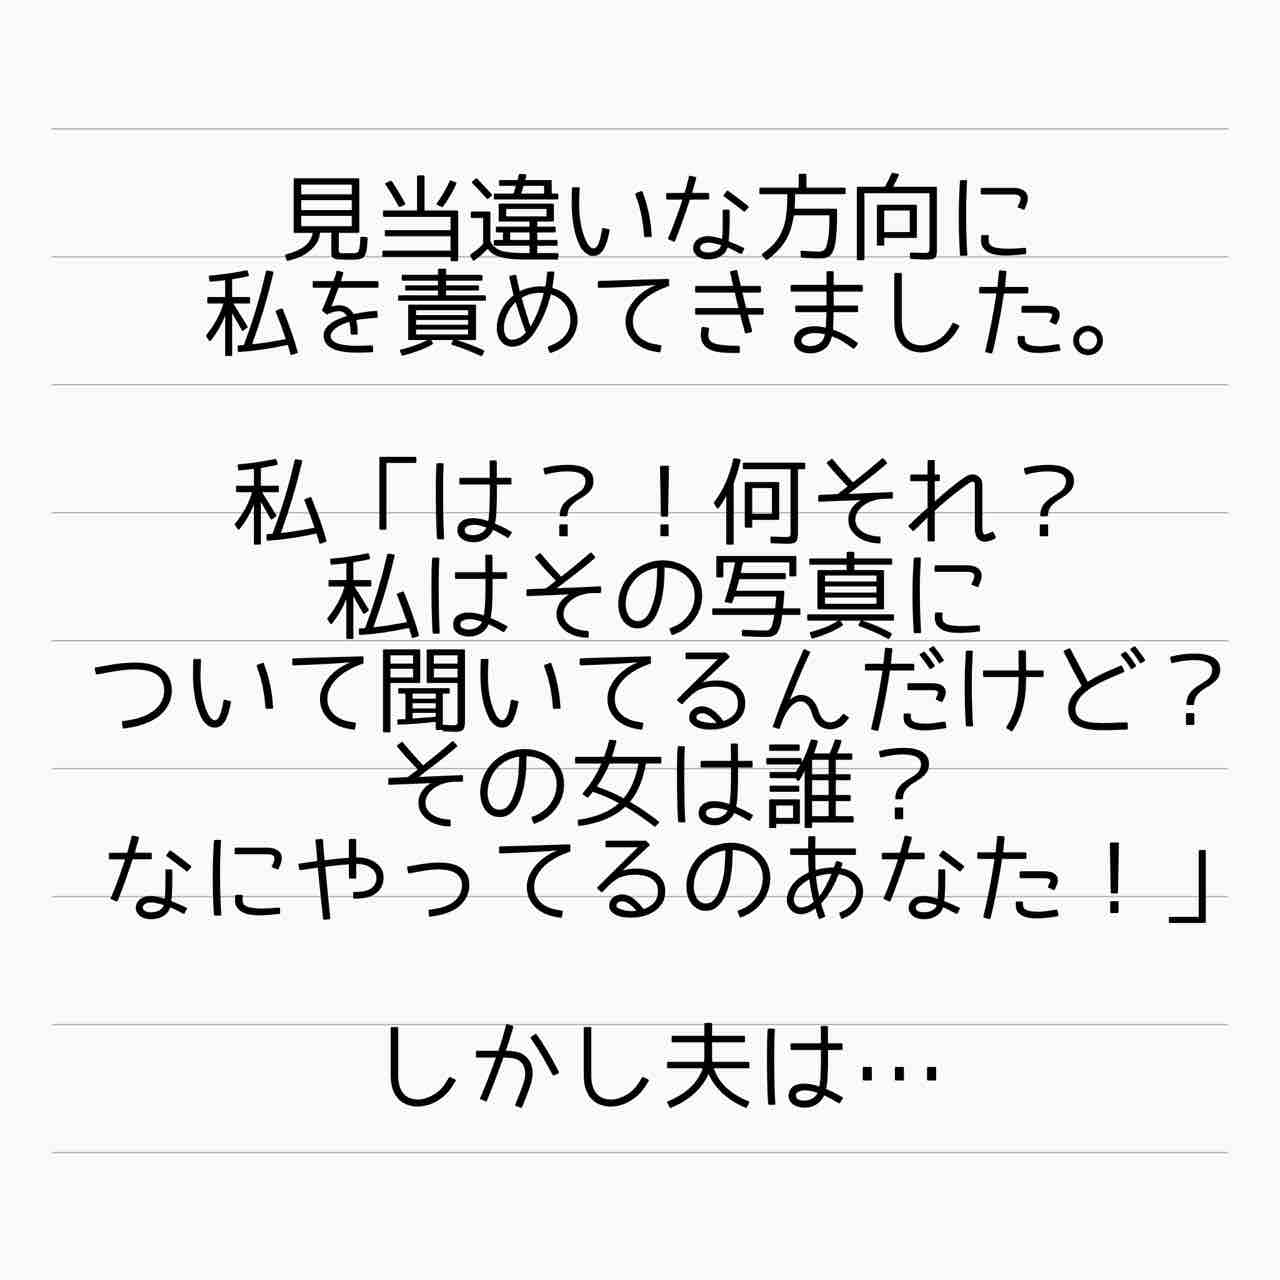 見当違いな方向に
私を責めてきました。
私「は？！何それ？
私はその写真に
ついて聞いてるんだけど？
その女は誰？
なにやってるのあなた！」
しかし夫は…